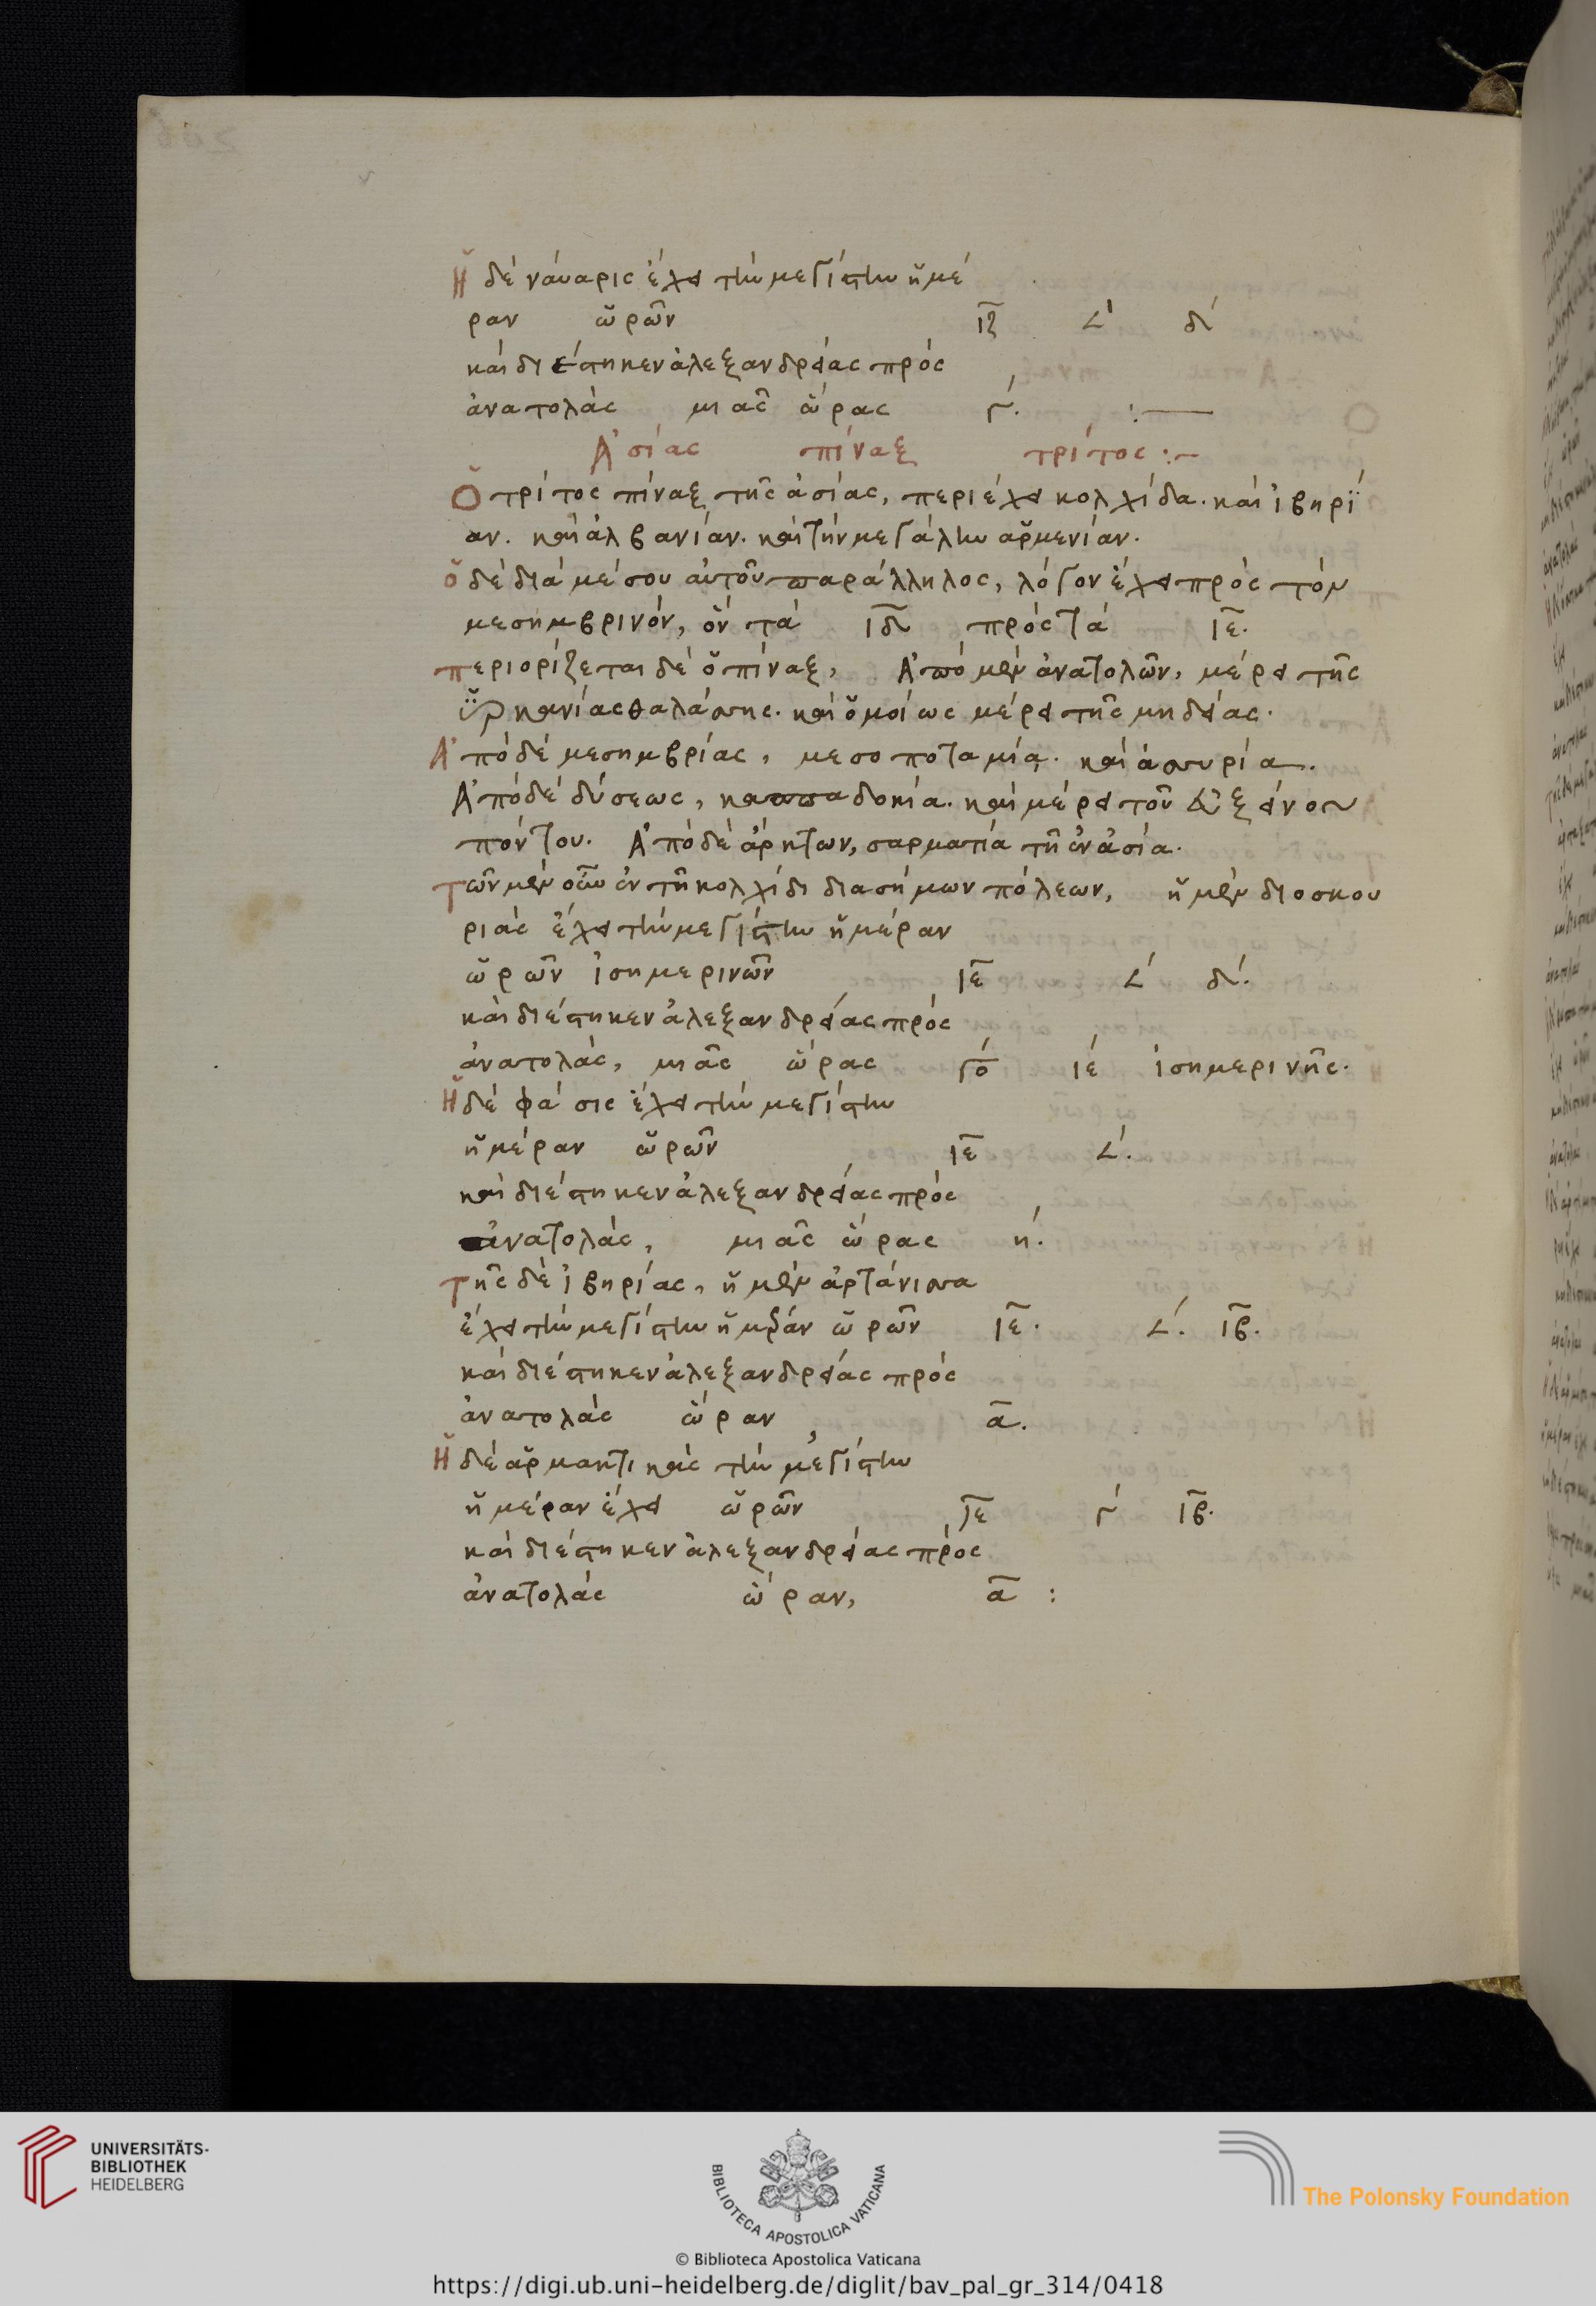 Ἡ δὲ νάυαρις ἔχει τὴν μεγίστην ἡμέ
ραν ὡρῶν ιζ ∠ʹ δʹ
καὶ διέστηκεν ἀλεξανδρείας πρὸς
ἀνατολὰς μιᾶς ὥρας γʹ. :—
Ἀσίας πίναξ τρίτος :~
Ὁ τρίτος πίναξ τῆς ἀσίας, περιέχει κολχίδα. καὶ ἰβηρί
αν. καὶ ἀλβανίαν. καὶ τὴν μεγάλην ἀρμενίαν.
ὁ δὲ διὰ μέσου αὐτοῦ παράλληλος, λόγον ἔχει πρὸς τὸν
μεσημβρινόν, ὃν τὰ ιδ πρὸς τὰ ιε.
περιορίζεται δὲ ὁ πίναξ, Ἀπὸ μὲν ἀνατολῶν, μέρει τῆς
ὑρκανίας θαλάσσης. καὶ ὁμοίως μέρει τῆς μηδείας.
Ἀπὸ δὲ μεσημβρίας, μεσοποταμία. καὶ ἀσσυρία.
Ἀπὸ δὲ δύσεως, καππαδοκία. καὶ μέρει τοῦ εὐξείνου
πόντου. Ἀπὸ δὲ ἄρκτων, σαρματία τῇ ἐν ἀσία.
τῶν μὲν οὖν ἐν τῇ κολχίδι διασήμων πόλεων, ἡ μὲν διοσκου
ριὰς ἔχει τὴν μεγίστην ἡμέραν
ὡρῶν ἰσημερινῶν ιε ∠ʹ δʹ.
καὶ διέστηκεν ἀλεξανδρείας πρὸς
ἀνατολὰς, μιᾶς ὥρας γο ιέ ἰσημερινῆς.
Ἡ δὲ φάσις ἔχει τὴν μεγίστην
ἡμέραν ὡρῶν ιε ∠ʹ.
καὶ διέστηκεν ἀλεξανδρείας πρὸς
ἀνατολὰς, μιᾶς ὥρας ηʹ.
τῆς δὲ ἰβηρίας, ἡ μὲν ἀρτάνισσα
ἔχει τὴν μεγίστην ἡμέραν ὡρῶν ιε. ∠ʹ. ιβ.
καὶ διέστηκεν ἀλεξανδρείας πρὸς
ἀνατολὰς ὥραν α.
Ἡ δὲ ἁρμακτικὰς τὴν μεγίστην
ἡμέραν ἔχει ὡρῶν ιε γʹ ιβ.
καὶ διέστηκεν ἀλεξανδρείας πρὸς
ἀνατολὰς ὥραν, α :
UNIVERSITÄTS-
BIBLIOTHEK
HEIDELBERG
BIBLIOTECA APOSTOLICA VATICANA
The Polonsky Foundation
© Biblioteca Apostolica Vaticana
https://digi.ub.uni-heidelberg.de/diglit/bav_pal_gr_314/0418